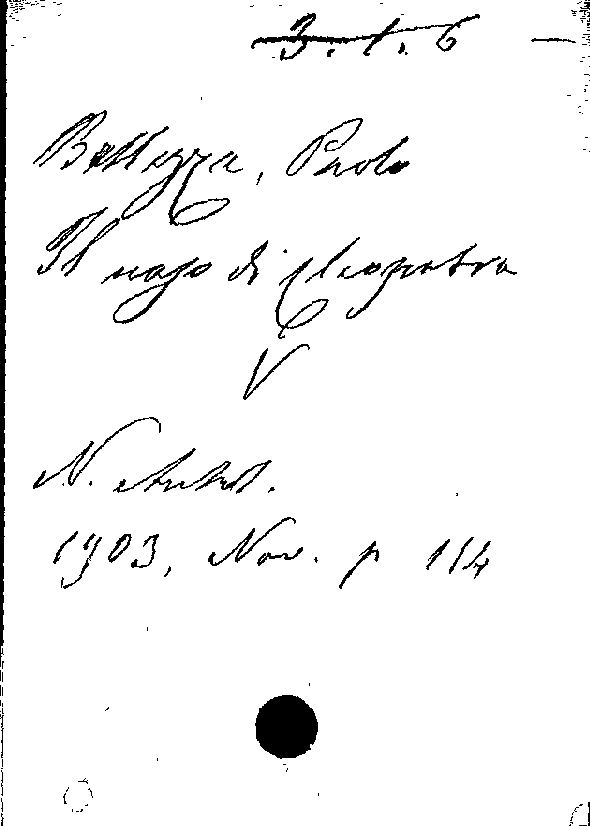 3.1.6 —
Bellezza, Paolo
Il naso di Cleopatra
V
N. Antol.
1903, Nov. p 114